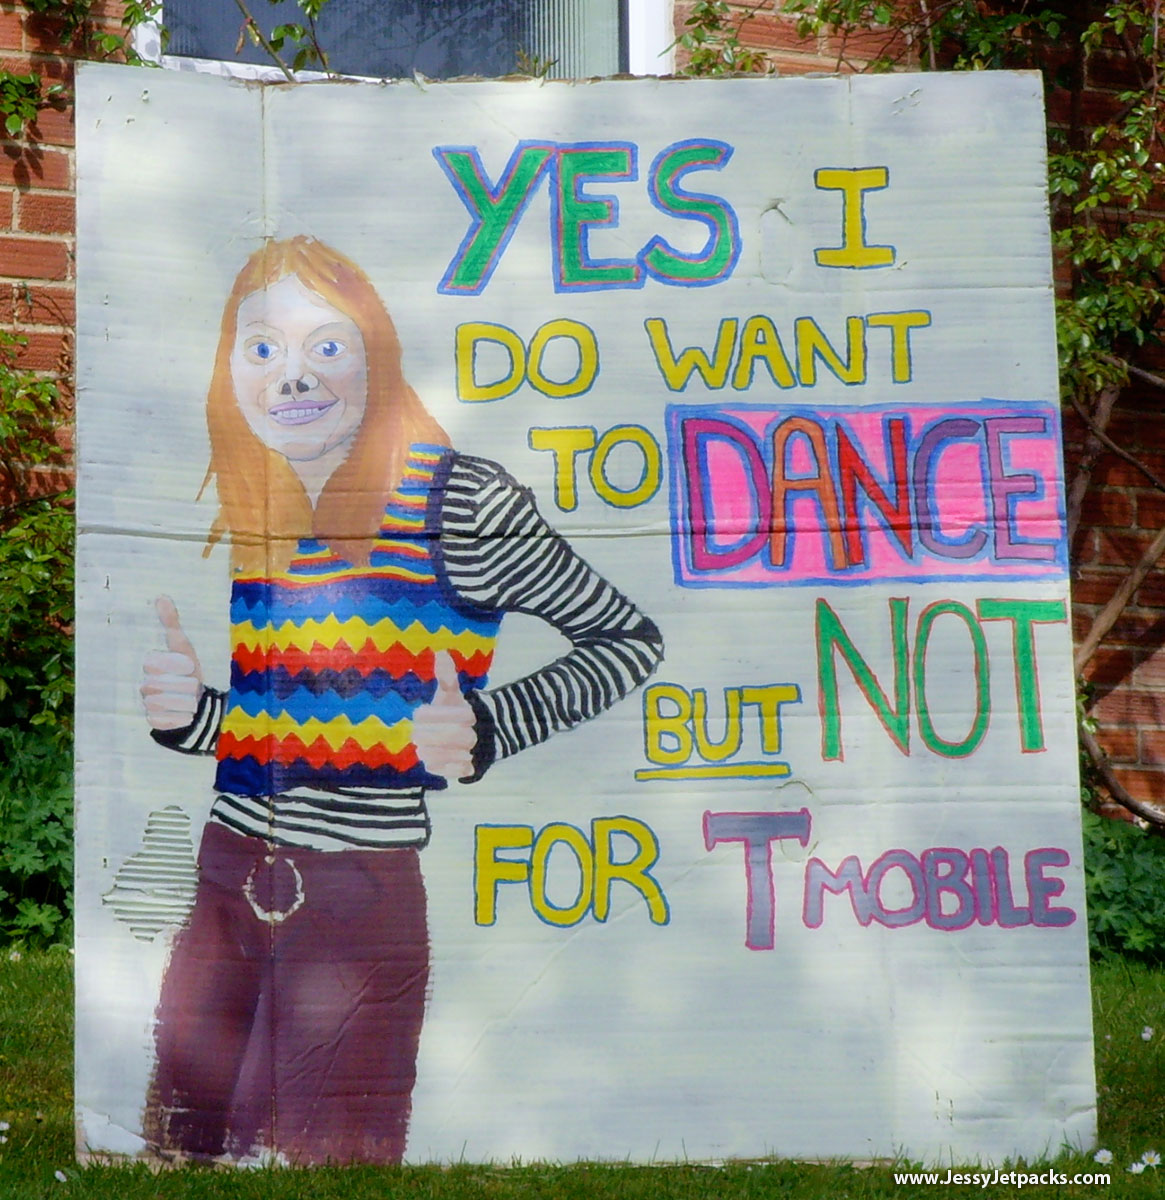 YES I
DO WANT
TO DANCE
BUT NOT
FOR T MOBILE
www.JessyJetpacks.com